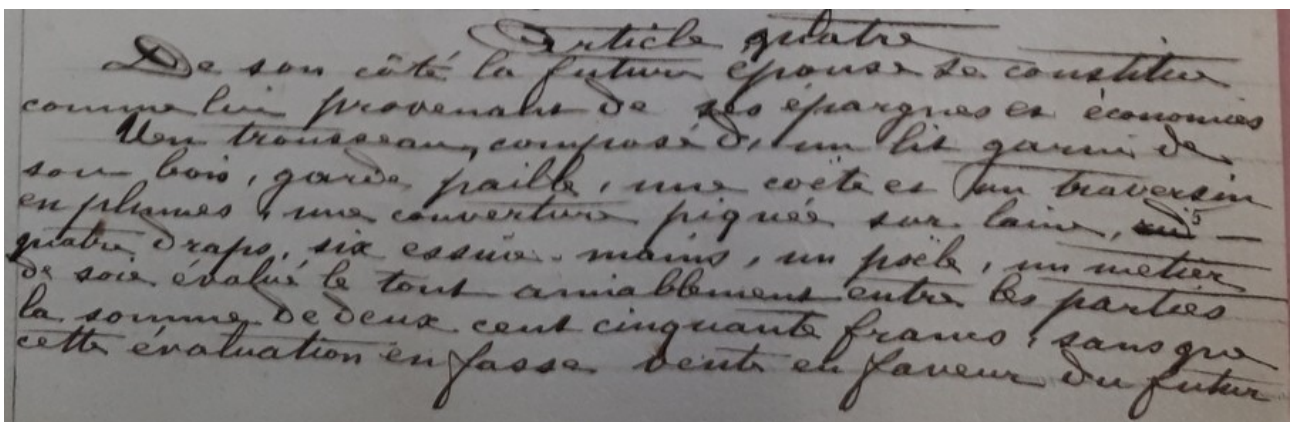 Article quatre
De son côté la future épouse se constitue
comme lui provenant de ses épargnes et économies
Un trousseau, composé d'un lit garni de
son bois, garde paille, une coëte et un traversin
en plumes, une couverture piquée sur laine,
quatre draps, six essuie-mains, un poële, un métier
de soie évalué le tout amiablement entre les parties
la somme de deux cent cinquante francs, sans que
cette évaluation en fasse vente en faveur du futur